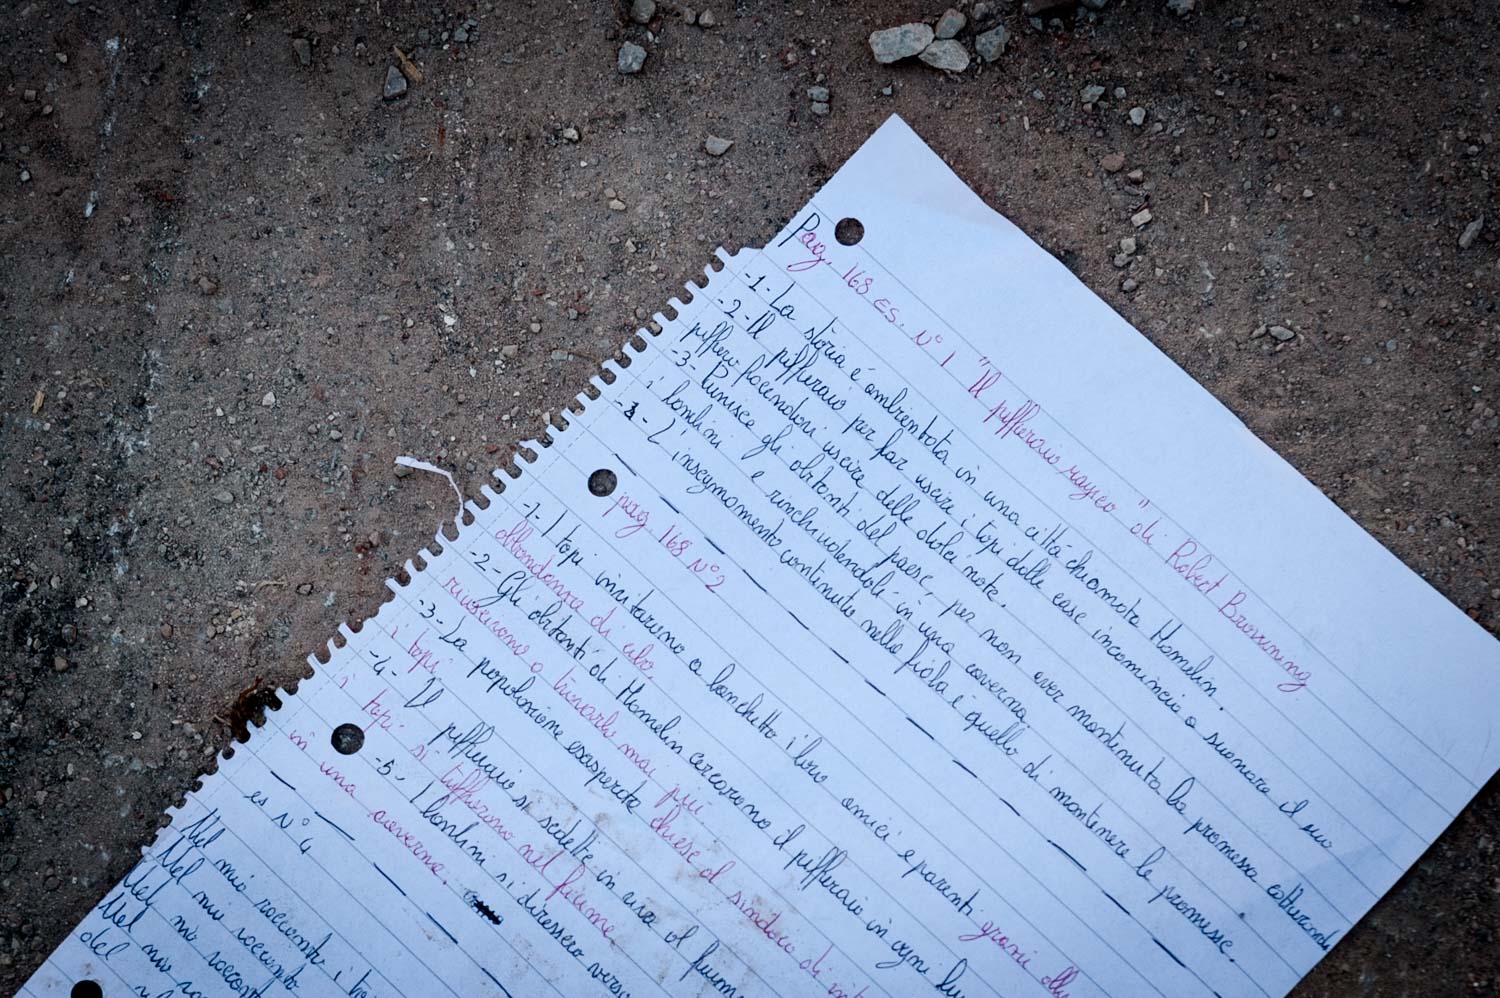 Pag. 168 es. N° 1 "Il pifferaio magico" di Robert Browning
-1- La storia é ambientata in una città chiamata Hamelin.
-2- Il pifferaio per far uscire i topi dalle case incomincia a suonare il suo
piffero facendovi uscire delle dolci note.
-3- Punisce gli abitanti del paese, per non aver mantenuta la promessa catturando
i bambini e rinchiudendoli in una caverna.
-4- L'insegnamento contenuto nella fiaba è quello di mantenere le promesse.
pag 168 N°2
-1- I topi invitarono a banchetto i loro amici e parenti grazie all
abbondanza di cibo.
-2- Gli abitanti di Hamelin cercarono il pifferaio in ogni lu
riuscirono a trovarlo mai più
-3- La popolazione esasperata chiese al sindaco di
i topi.
-4- Il pifferaio si sedette in riva al fium
i topi si tuffarono nel fiume
-5- I bambini si diressero verso
in una caverna.
es N° 4
Nel mio racconto i
Nel mio racconto
Nel mio racconto
Nel mio
del